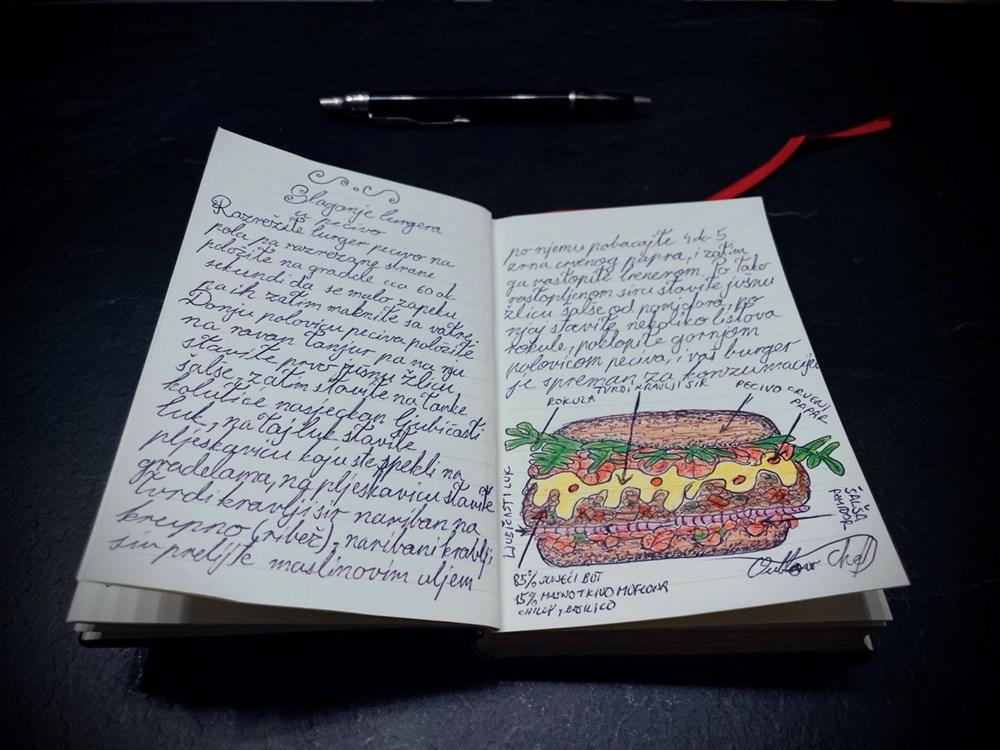 Slaganje burgera
u pecivo
Razrežite burger pecivo na
pola pa razrezane strane
položite na gradele cca 60ak
sekundi da se malo zapeku
pa ih zatim maknite sa vatre.
Donju polovicu peciva položite
na ravan tanjur pa na nju
stavite prvo jušnu žlicu
šalše, zatim stavite na tanke
kolutiće nasjeckan ljubičasti
luk, na taj luk stavite
pljeskavicu koju ste ispekli na
gradelama, na pljeskavicu stavite
tvrdi kravlji sir nariban na
krupno (ribež), naribani kravlji
sir prelijte maslinovim uljem
po njemu pobacajte 4 do 5
zrna crvenog papra, i zatim
ga rastopite brenerom. Po tako
rastopljenom siru stavite jušnu
žlicu šalše od pomidora, po
njoj stavite nekoliko listova
rokule, poklopite gornjom
polovicom peciva, i vaš burger
je spreman za konzumaciju
ROKULA
TVRDI KRAVLJI SIR
PECIVO
CRVENI
PAPAR
LJUBIČASTI LUK
ŠALŠA
POMIDOR
85% JUNEĆI BUT
15% MASNO TKIVO MUFLONA
CHILLY, BOSILJKO
Outlaw Chef